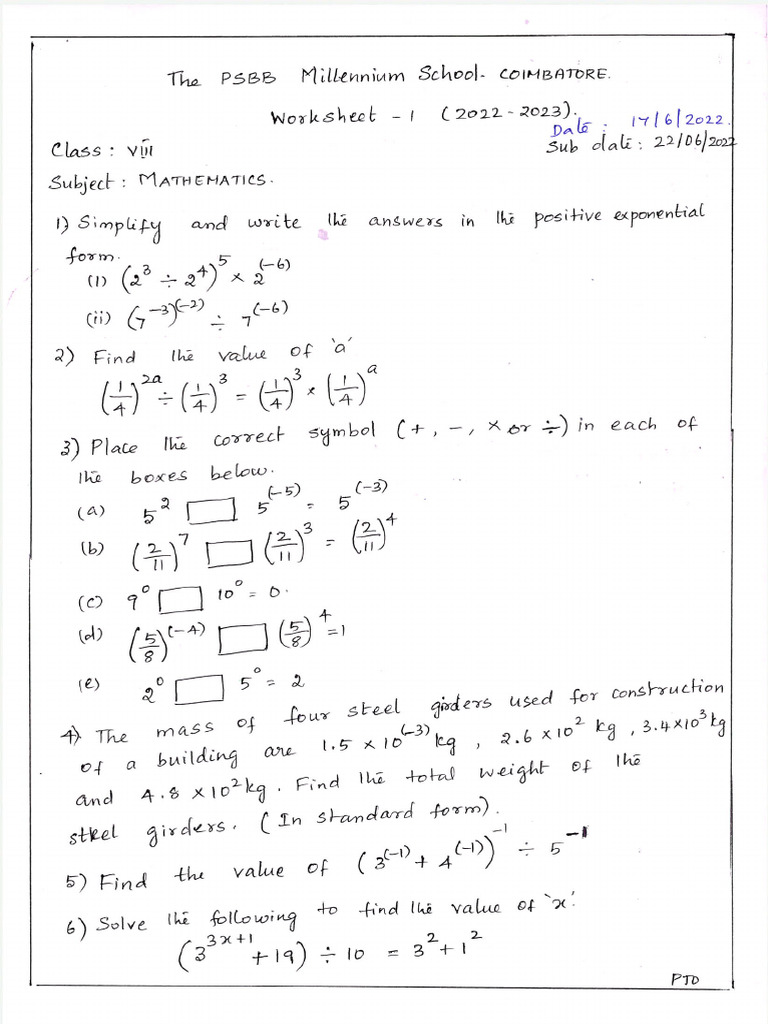 The PSBB Millennium School- COIMBATORE.
Worksheet - 1 (2022-2023).
Date: 17/6/2022.
Class: VIII
Sub date: 22/06/2022
Subject: MATHEMATICS.
1) Simplify and write the answers in the positive exponential
form.
(i) (2³ ÷ 2⁴)⁵ × 2⁽⁻⁶⁾
(ii) (7⁻³)⁽⁻²⁾ ÷ 7⁽⁻⁶⁾
2) Find the value of 'a'
(1/4)²ᵃ ÷ (1/4)³ = (1/4)³ × (1/4)ᵃ
3) Place the correct symbol (+, -, × or ÷) in each of
the boxes below.
(a) 5² □ 5⁽⁻⁵⁾ = 5⁽⁻³⁾
(b) (2/11)⁷ □ (2/11)³ = (2/11)⁴
(c) 9⁰ □ 10⁰ = 0.
(d) (5/8)⁽⁻⁴⁾ □ (5/8)⁴ = 1
(e) 2⁰ □ 5⁰ = 2
4) The mass of four steel girders used for construction
of a building are 1.5 × 10⁽⁻³⁾ kg, 2.6 × 10² kg, 3.4×10³ kg
and 4.8 × 10² kg. Find the total weight of the
steel girders. (In standard form).
5) Find the value of (3⁽⁻¹⁾ + 4⁽⁻¹⁾)⁻¹ ÷ 5⁻¹
6) Solve the following to find the value of 'x'.
(3³ˣ⁺¹ + 19) ÷ 10 = 3² + 1²
PTO